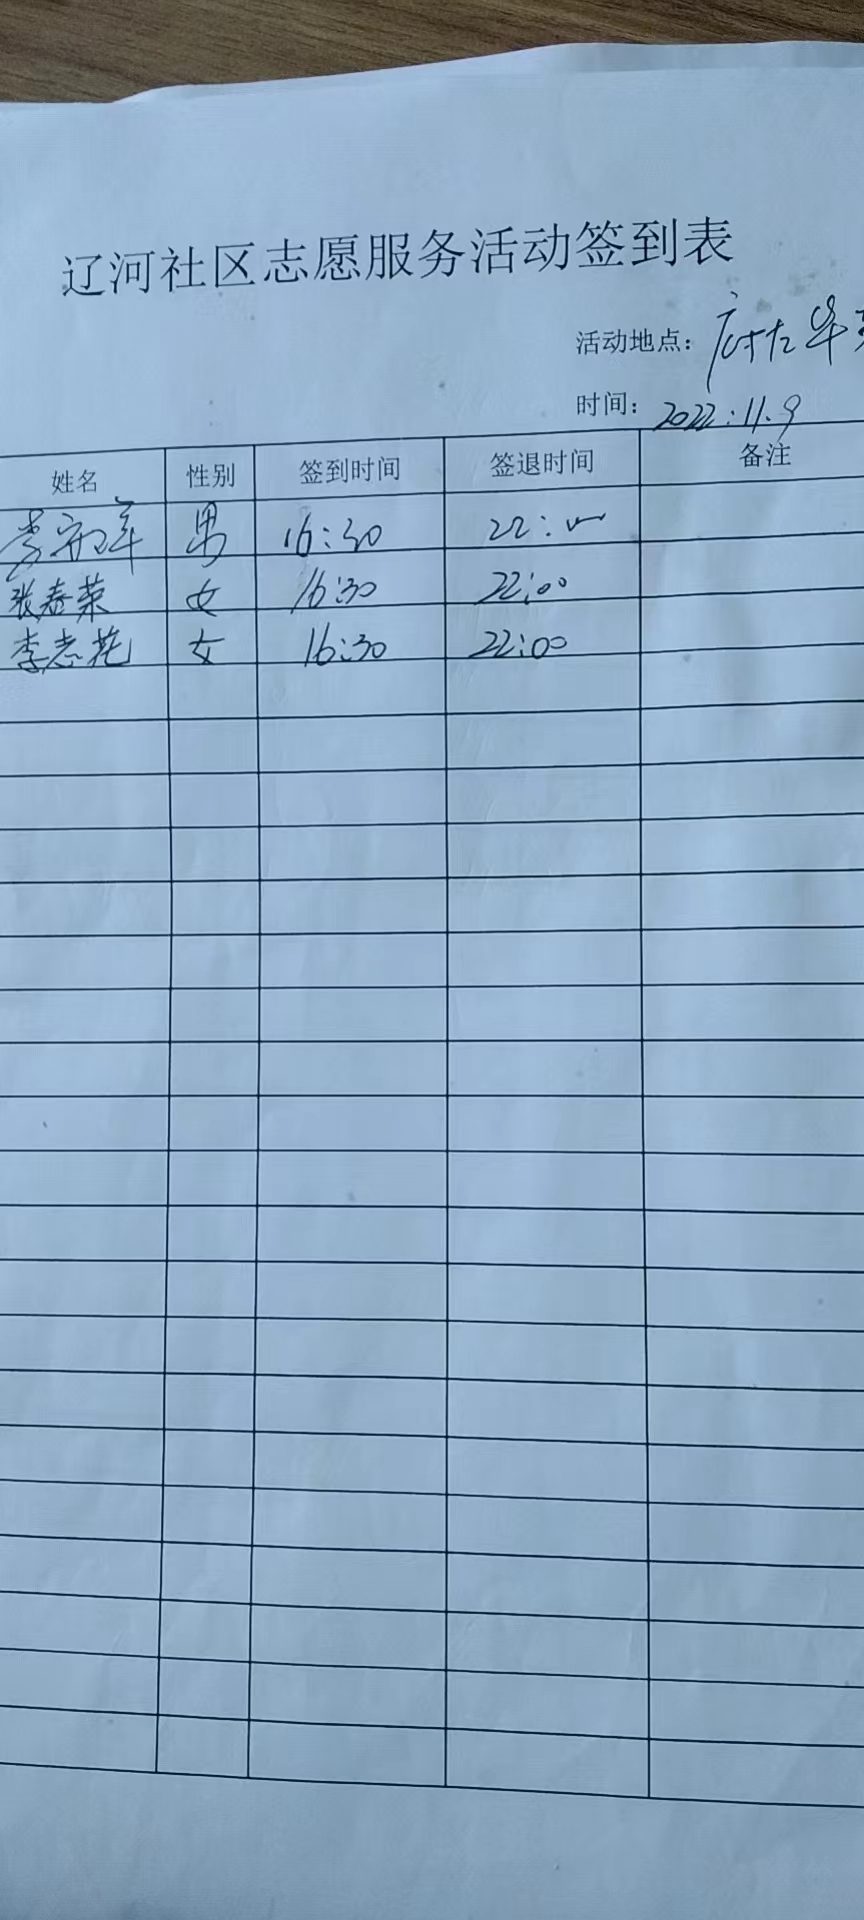 辽河社区志愿服务活动签到表
活动地点：
时间：2022.11.9
姓名 性别 签到时间 签退时间 备注
男 16:30 22:00
张春荣 女 16:30 22:00
李志花 女 16:30 22:00